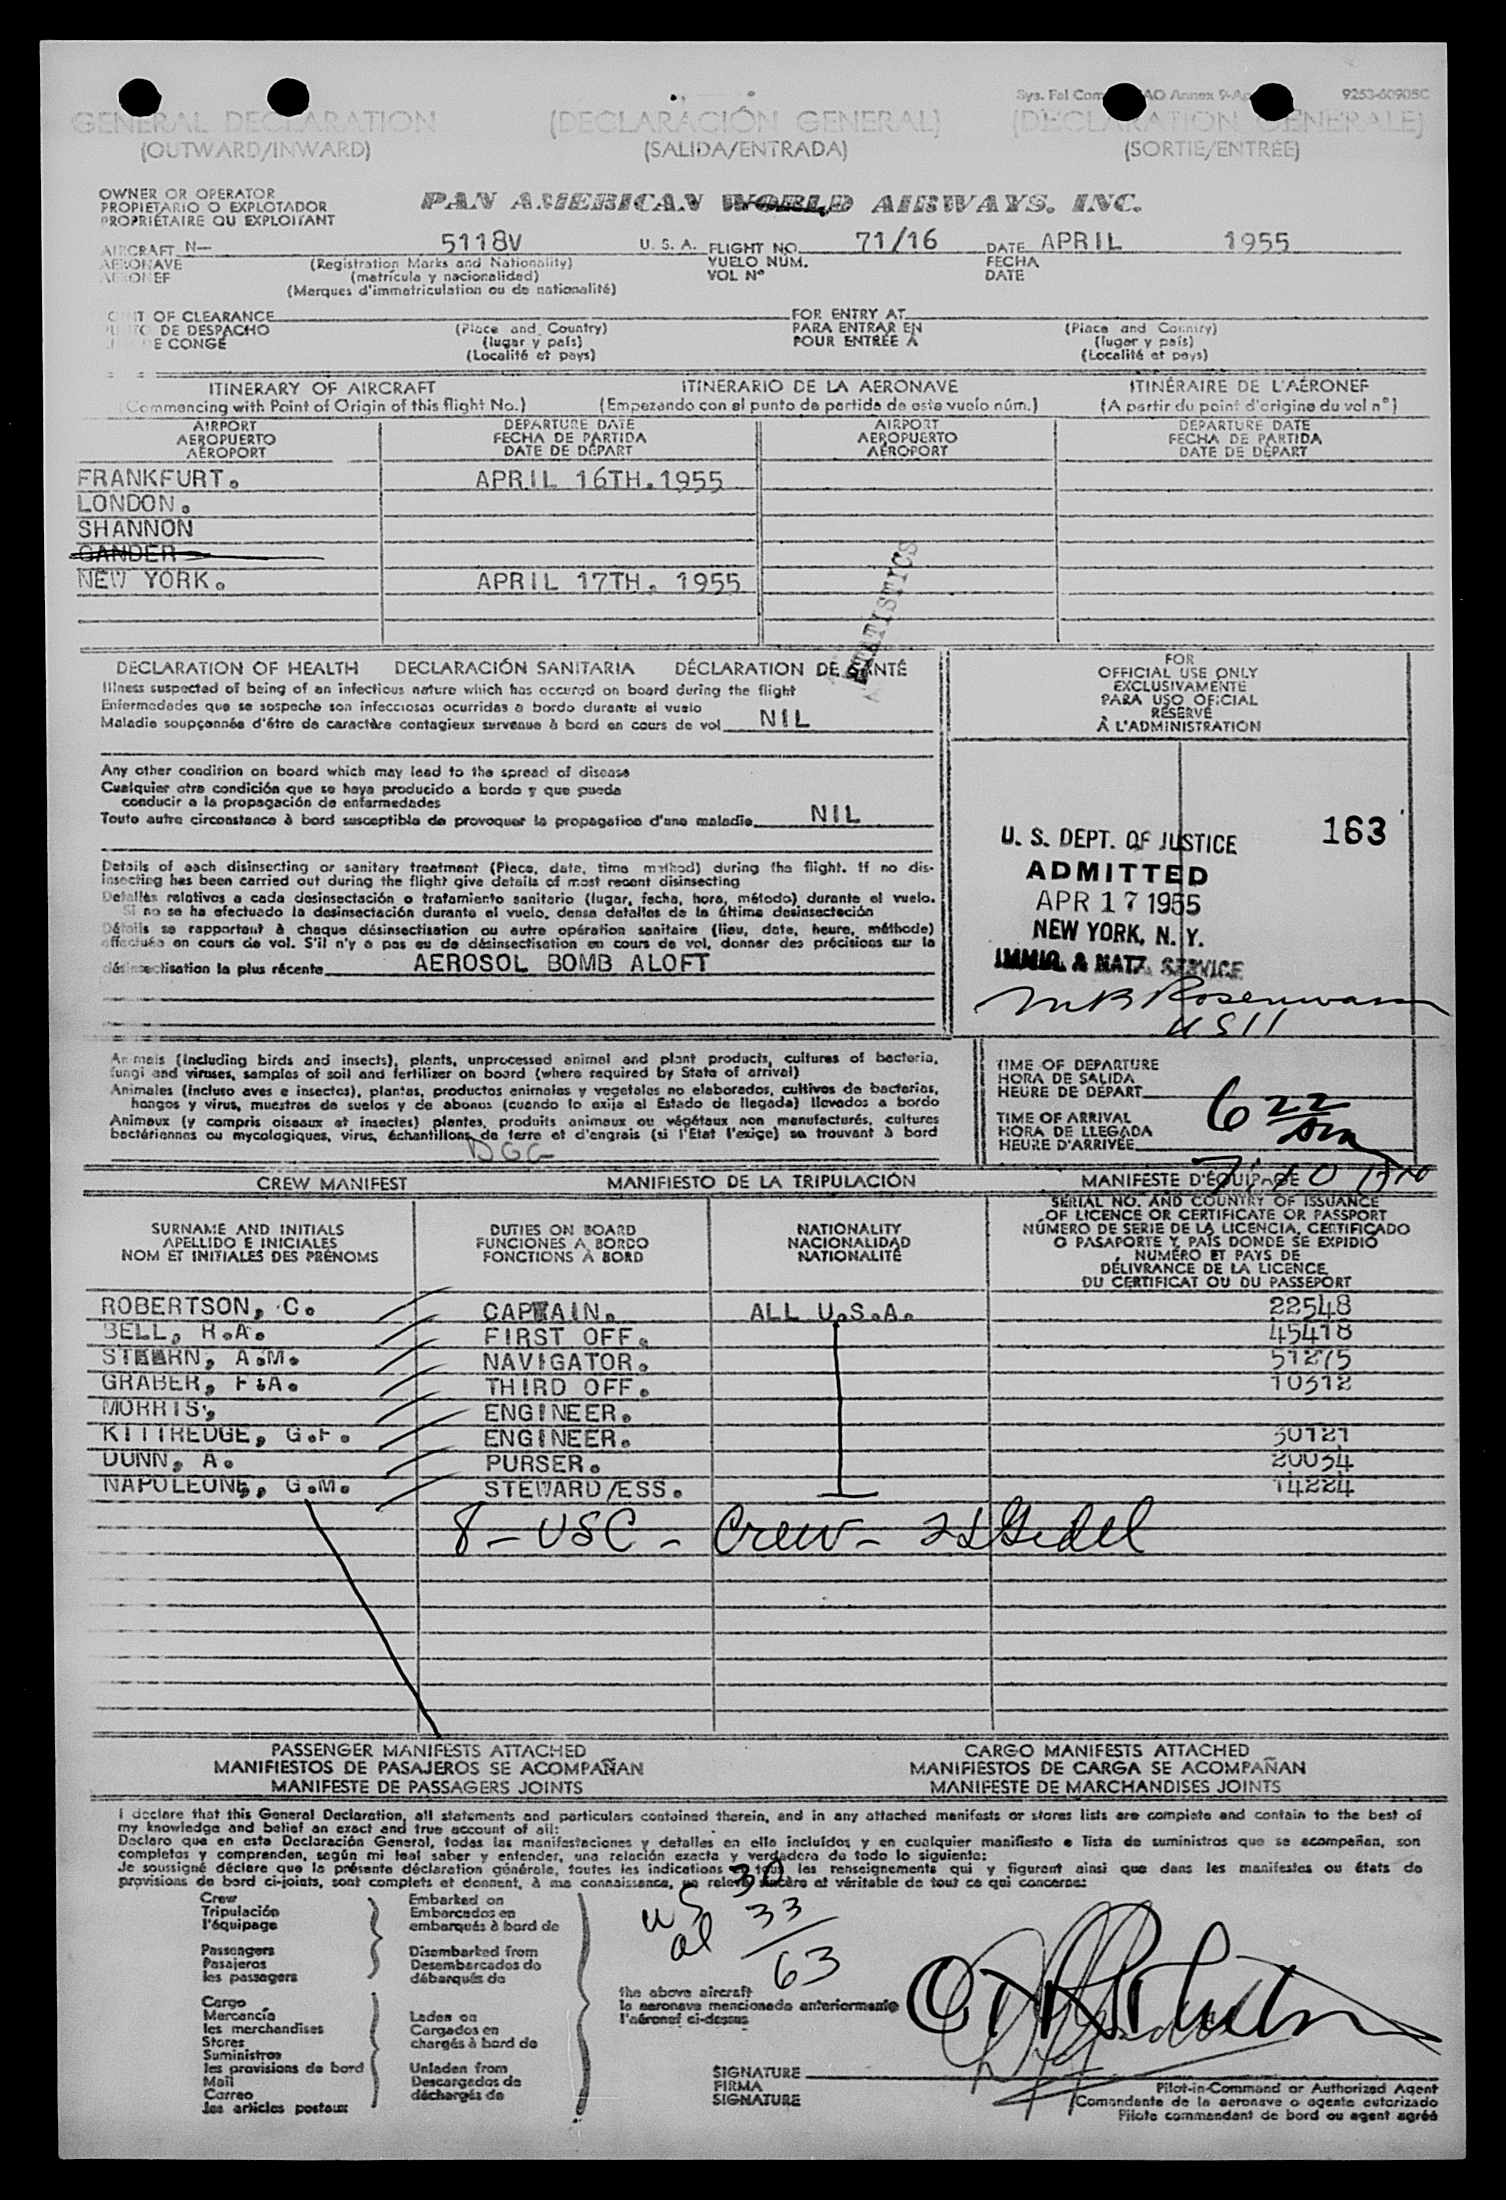 Sys. Fal Com AO Annex 9-Ap 9253-60905C
GENERAL DECLARATION (DECLARACIÓN GENERAL) (DÉCLARATION GÉNÉRALE)
(OUTWARD/INWARD) (SALIDA/ENTRADA) (SORTIE/ENTRÉE)
OWNER OR OPERATOR
PROPIETARIO O EXPLOTADOR
PROPRIÉTAIRE OU EXPLOITANT
PAN AMERICAN WORLD AIRWAYS, INC.
AIRCRAFT N- 5118V U. S. A. FLIGHT NO. 71/16 DATE APRIL 1955
AERONAVE (Registration Marks and Nationality) VUELO NÚM. FECHA
AÉRONEF (matrícula y nacionalidad) VOL N° DATE
(Marques d'immatriculation ou de nationalité)
POINT OF CLEARANCE FOR ENTRY AT
PUNTO DE DESPACHO (Place and Country) PARA ENTRAR EN (Place and Country)
E CONGÉ (lugar y país) POUR ENTRÉE À (lugar y país)
(Localité et pays) (Localité et pays)
ITINERARY OF AIRCRAFT ITINERARIO DE LA AERONAVE ITINÉRAIRE DE L'AÉRONEF
(Commencing with Point of Origin of this flight No.) (Empezando con el punto de partida de este vuelo núm.) (A partir du point d'origine du vol n°)
AIRPORT DEPARTURE DATE AIRPORT DEPARTURE DATE
AEROPUERTO FECHA DE PARTIDA AEROPUERTO FECHA DE PARTIDA
AÉROPORT DATE DE DÉPART AÉROPORT DATE DE DÉPART
FRANKFURT. APRIL 16TH.1955
LONDON.
SHANNON
GANDER
NEW YORK. APRIL 17TH. 1955
STATISTICS
DECLARATION OF HEALTH DECLARACIÓN SANITARIA DÉCLARATION DE SANTÉ
Illness suspected of being of an infectious nature which has occured on board during the flight
Enfermedades que se sospecha son infecciosas ocurridas a bordo durante el vuelo
Maladie soupçonnée d'être de caractère contagieux survenue à bord en cours de vol NIL
Any other condition on board which may lead to the spread of disease
Cualquier otra condición que se haya producido a bordo y que pueda
conducir a la propagación de enfermedades
Toute autre circonstance à bord susceptible de provoquer la propagation d'une maladie NIL
Details of each disinsecting or sanitary treatment (Place, date, time method) during the flight. If no dis-
insecting has been carried out during the flight give details of most recent disinsecting
Detalles relativos a cada desinsectación o tratamiento sanitario (lugar, fecha, hora, método) durante el vuelo.
Si no se ha efectuado la desinsectación durante el vuelo, dense detalles de la última desinsectación
Détails se rapportant à chaque désinsectisation ou autre opération sanitaire (lieu, date, heure, méthode)
effectuée en cours de vol. S'il n'y a pas eu de désinsectisation en cours de vol, donner des précisions sur la
désinsectisation la plus récente AEROSOL BOMB ALOFT
FOR
OFFICIAL USE ONLY
EXCLUSIVAMENTE
PARA USO OFICIAL
RÉSERVÉ
À L'ADMINISTRATION
163
U. S. DEPT. OF JUSTICE
ADMITTED
APR 17 1955
NEW YORK, N. Y.
IMMIG. & NATZ. SERVICE
Animals (including birds and insects), plants, unprocessed animal and plant products, cultures of bacteria,
fungi and viruses, samples of soil and fertilizer on board (where required by State of arrival)
Animales (incluso aves e insectos), plantas, productos animales y vegetales no elaborados, cultivos de bacterias,
hongos y virus, muestras de suelos y de abonos (cuando lo exija el Estado de llegada) llevados a bordo
Animaux (y compris oiseaux et insectes) plantes, produits animaux ou végétaux non manufacturés, cultures
bactériennes ou mycologiques, virus, échantillons de terre et d'engrais (si l'État l'exige) se trouvant à bord
DOG
TIME OF DEPARTURE
HORA DE SALIDA
HEURE DE DÉPART
TIME OF ARRIVAL 6 22 am
HORA DE LLEGADA
HEURE D'ARRIVÉE
CREW MANIFEST MANIFIESTO DE LA TRIPULACIÓN MANIFESTE D'ÉQUIPAGE
SURNAME AND INITIALS DUTIES ON BOARD NATIONALITY
APELLIDO E INICIALES FUNCIONES A BORDO NACIONALIDAD
NOM ET INITIALES DES PRÉNOMS FONCTIONS À BORD NATIONALITÉ
SERIAL NO. AND COUNTRY OF ISSUANCE
OF LICENCE OR CERTIFICATE OR PASSPORT
NÚMERO DE SERIE DE LA LICENCIA, CERTIFICADO
O PASAPORTE Y PAÍS DONDE SE EXPIDIÓ
NUMÉRO ET PAYS DE
DÉLIVRANCE DE LA LICENCE
DU CERTIFICAT OU DU PASSEPORT
ROBERTSON, C. CAPTAIN. ALL U.S.A. 22548
BELL, R.A. FIRST OFF. 45418
STEARN, A.M. NAVIGATOR. 51275
GRABER, F.A. THIRD OFF. 10312
MORRIS, ENGINEER.
KITTREDGE, G.F. ENGINEER. 30121
DUNN, A. PURSER. 20034
NAPOLEONE, G.M. STEWARD/ESS. 14224
8 - USC - Crew -
PASSENGER MANIFESTS ATTACHED CARGO MANIFESTS ATTACHED
MANIFIESTOS DE PASAJEROS SE ACOMPAÑAN MANIFIESTOS DE CARGA SE ACOMPAÑAN
MANIFESTE DE PASSAGERS JOINTS MANIFESTE DE MARCHANDISES JOINTS
I declare that this General Declaration, all statements and particulars contained therein, and in any attached manifests or stores lists are complete and contain to the best of
my knowledge and belief an exact and true account of all:
Declaro que en esta Declaración General, todas las manifestaciones y detalles en ella incluídos y en cualquier manifiesto o lista de suministros que se acompañan, son
completos y comprenden, según mi leal saber y entender, una relación exacta y verdadera de todo lo siguiente:
Je soussigné déclare que la présente déclaration générale, toutes les indications et tous les renseignements qui y figurent ainsi que dans les manifestes ou états de
provisions de bord ci-joints, sont complets et donnent, à ma connaissance, un relevé sincère et véritable de tout ce qui concerne:
Crew Embarked on
Tripulación Embarcados en
l'équipage embarqués à bord de
Passengers Disembarked from
Pasajeros Desembarcados de
les passagers débarqués de
Cargo
Mercancía Laden on
les merchandises Cargados en
Stores chargés à bord de
Suministros
les provisions de bord Unladen from
Mail Descargados de
Correo déchargés de
les articles postaux
US 30
al 33
63
the above aircraft
la aeronave mencionada anteriormente
l'aéronef ci-dessus
SIGNATURE
FIRMA
SIGNATURE
Pilot-in-Command or Authorized Agent
Comandante de la aeronave o agente autorizado
Pilote commandant de bord ou agent agréé